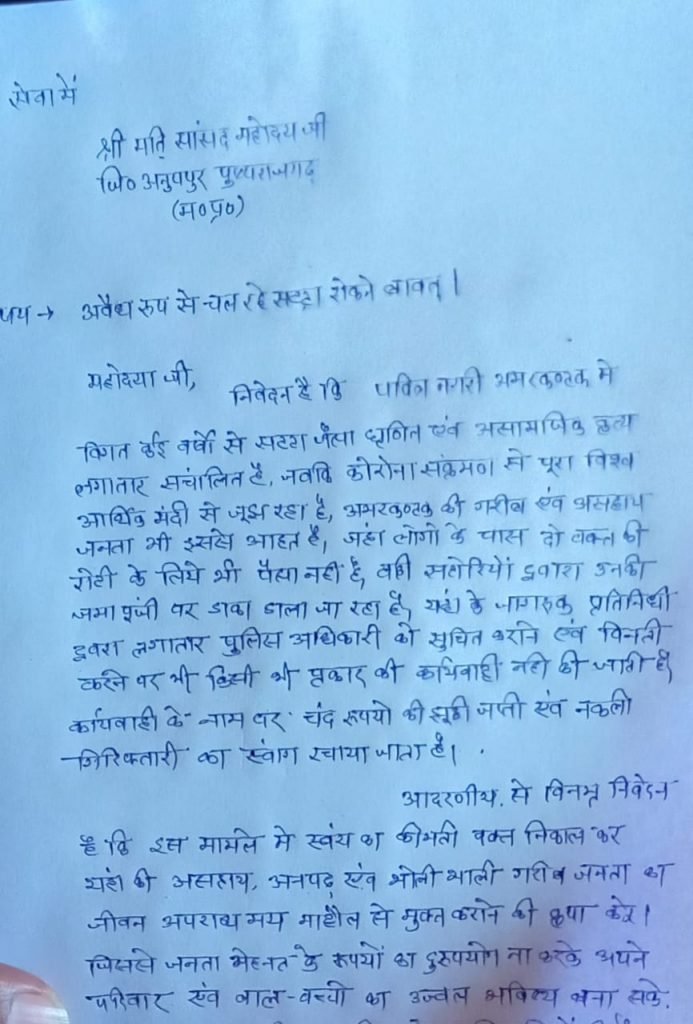 सेवा में
श्री मति सांसद महोदय जी
जि० अनुपपुर पुष्पराजगढ़
(म०प्र०)
षय → अवैध रुप से चल रहे सट्टा रोकने बावत् ।
महोदया जी,
निवेदन है कि पवित्र नगरी अमरकण्टक मे
विगत कई वर्षो से सट्टा जैसा घृणित एंव असामाजिक कृत्य
लगातार संचालित है, जबकि कोरोना संक्रमण से पूरा विश्व
आर्थिक मंदी से जूझ रहा है, अमरकण्टक की गरीब एंव असहाय
जनता भी इससे आहत है, जहां लोगो के पास दो वक्त की
रोटी के लिये भी पैसा नहीं है, वही सटोरियों द्वारा उनकी
जमा पूंजी पर डाका डाला जा रहा है, यहां के जागरुक प्रतिनिधी
द्वारा लगातार पुलिस अधिकारी को सुचित कराने एंव विनती
करने पर भी किसी भी प्रकार की कार्यवाही नही की जाती है,
कार्यवाही के नाम पर चंद रूपयो की झूठी जप्ती एंव नकली
गिरिफ्तारी का स्वांग रचाया जाता है।
आदरणीय, से विनम्र निवेदन
है कि इस मामले मे स्वंय का कीमती वक्त निकाल कर
यहां की असहाय, अनपढ़ एंव भोली भाली गरीब जनता का
जीवन अपराध मय माहौल से मुक्त कराने की कृपा करे।
जिससे जनता मेहनत के रूपयों का दुरुपयोग ना करके अपने
परिवार एंव बाल-बच्चो का उज्वल भविष्य बना सके.